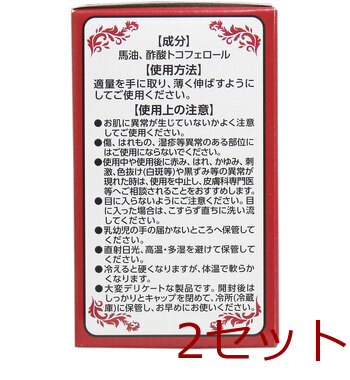 【成分】
馬油、酢酸トコフェロール
【使用方法】
適量を手に取り、薄く伸ばすように
してご使用ください。
【使用上の注意】
●お肌に異常が生じていないかよく注意
してご使用ください。
●傷、はれもの、湿疹等異常のある部位に
はご使用にならないでください。
●使用中や使用後に赤み、はれ、かゆみ、刺
激、色抜け(白斑等)や黒ずみ等の異常が
現れた時は、使用を中止し、皮膚科専門医
等へご相談されることをおすすめします。
●目に入らないようにご注意ください。目
に入った場合は、こすらず直ちに洗い流
してください。
●乳幼児の手の届かないところへ保管して
ください。
●直射日光、高温・多湿を避けて保管して
ください。
●冷えると硬くなりますが、体温で軟らか
くなります。
●大変デリケートな製品です。開封後は
しっかりとキャップを閉めて、冷所(冷蔵
庫)に保管し、お早めにお使いください。
2セット